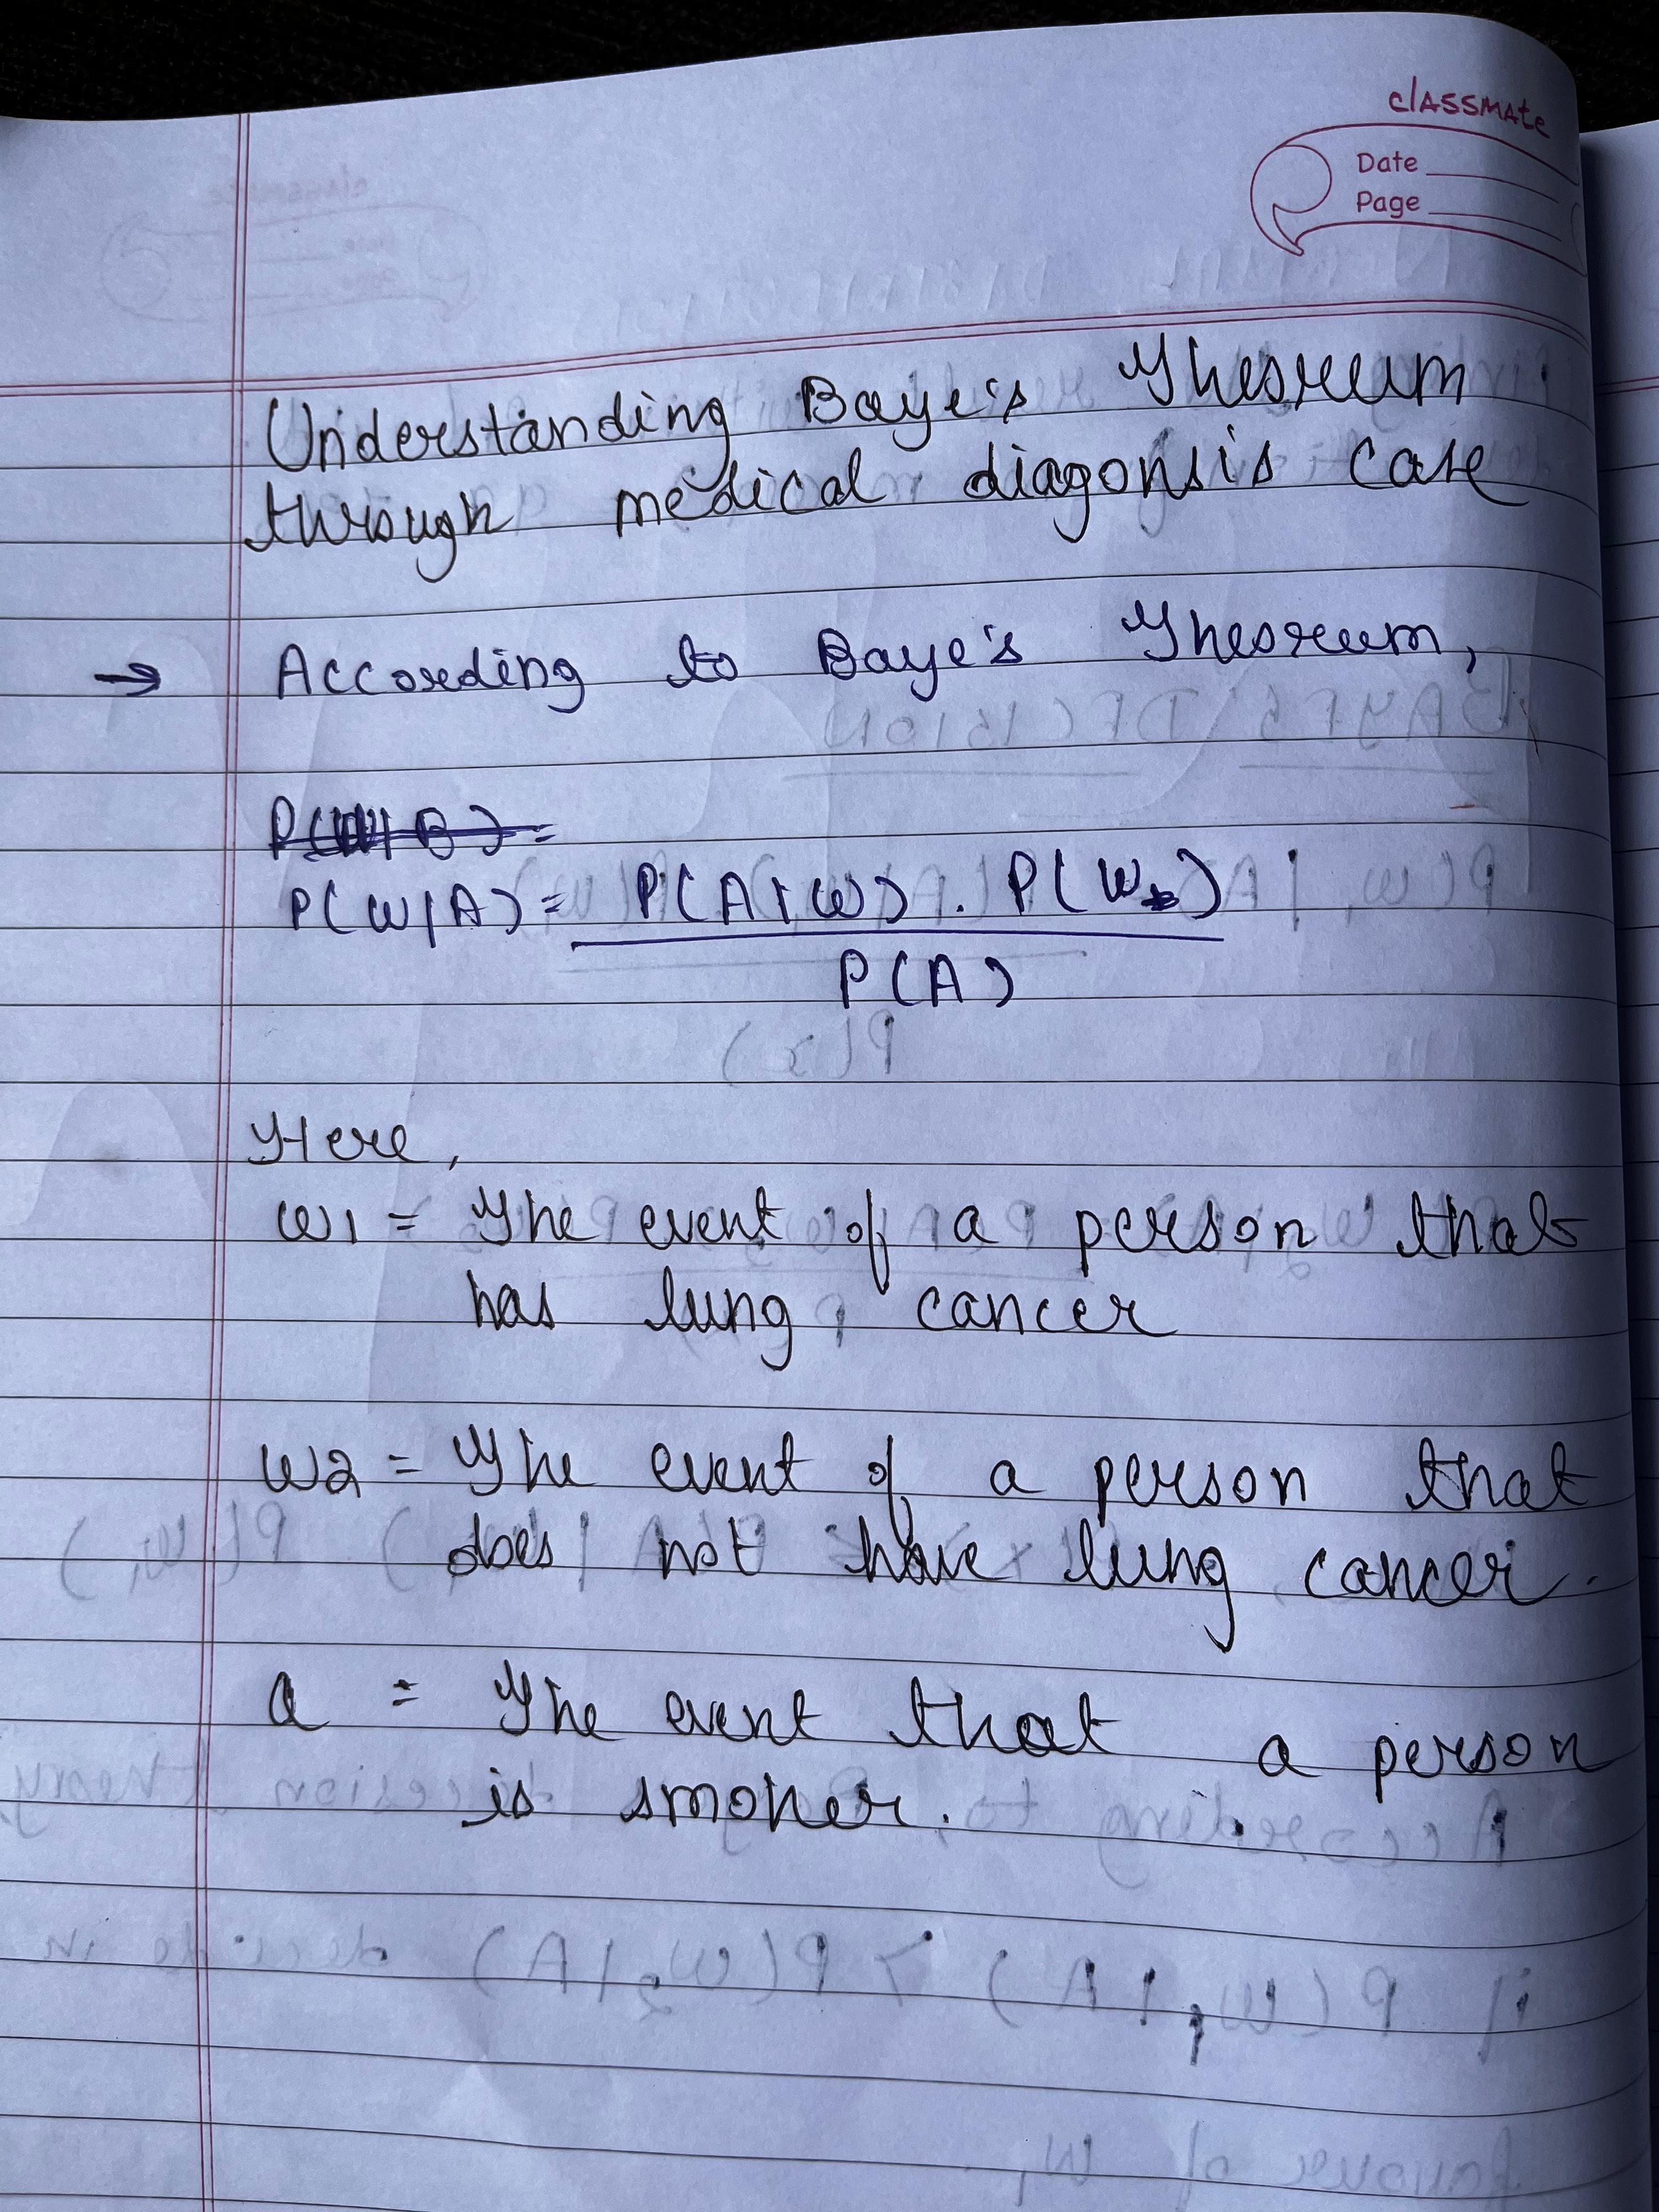 classmate
Date
Page
Understanding Baye's Theoreum
through medical diagonsis case
→ According to Baye's Theoreum,
P(W/A) = P(A|W) . P(W)
P(A)
Here,
w1 = The event of a person that
has lung cancer
w2 = The event of a person that
does not have lung cancer.
a = The event that a person
is smoker.